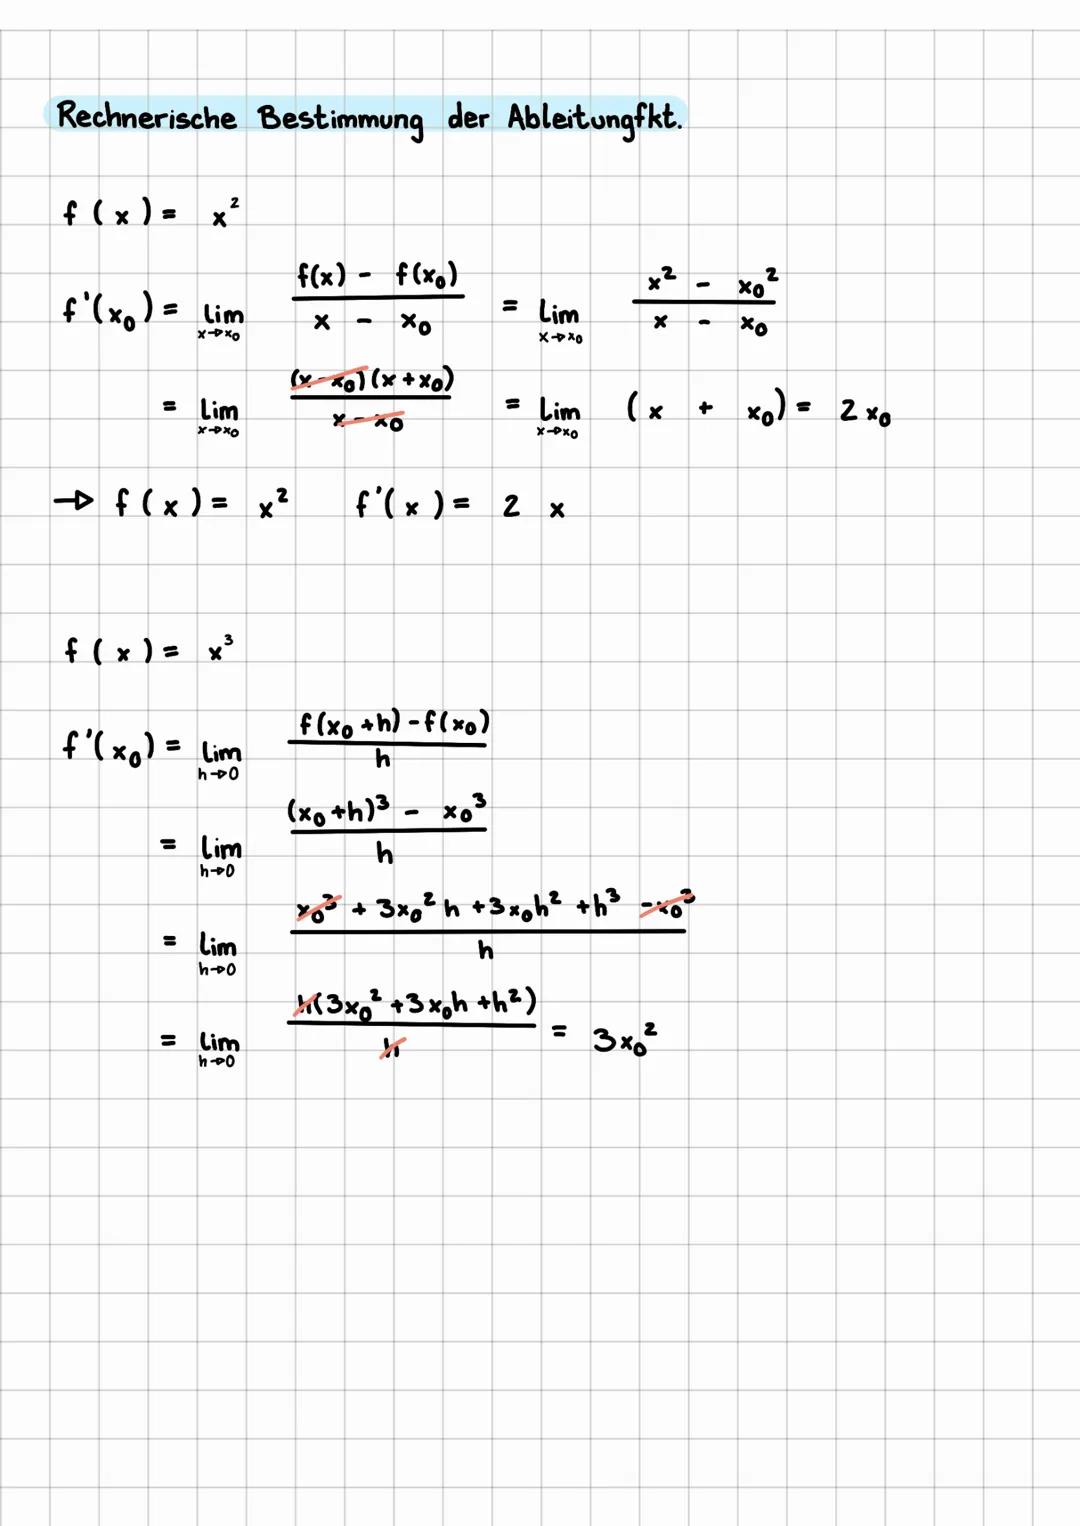 Rechnerische Bestimmung der Ableitungfkt.
f(x) = x²
f'(x₀) = lim x→x₀ (f(x) - f(x₀)) / (x - x₀) = lim x→x₀ (x² - x₀²) / (x - x₀)
= lim x→x₀ ((x-x₀)(x+x₀)) / (x-x₀) = lim x→x₀ (x + x₀) = 2x₀
→ f(x) = x² f'(x) = 2x
f(x) = x³
f'(x₀) = lim h→0 (f(x₀+h) - f(x₀)) / h
= lim h→0 ((x₀+h)³ - x₀³) / h
= lim h→0 (x₀³ + 3x₀²h + 3x₀h² + h³ - x₀³) / h
= lim h→0 (h(3x₀² + 3x₀h + h²)) / h = 3x₀²